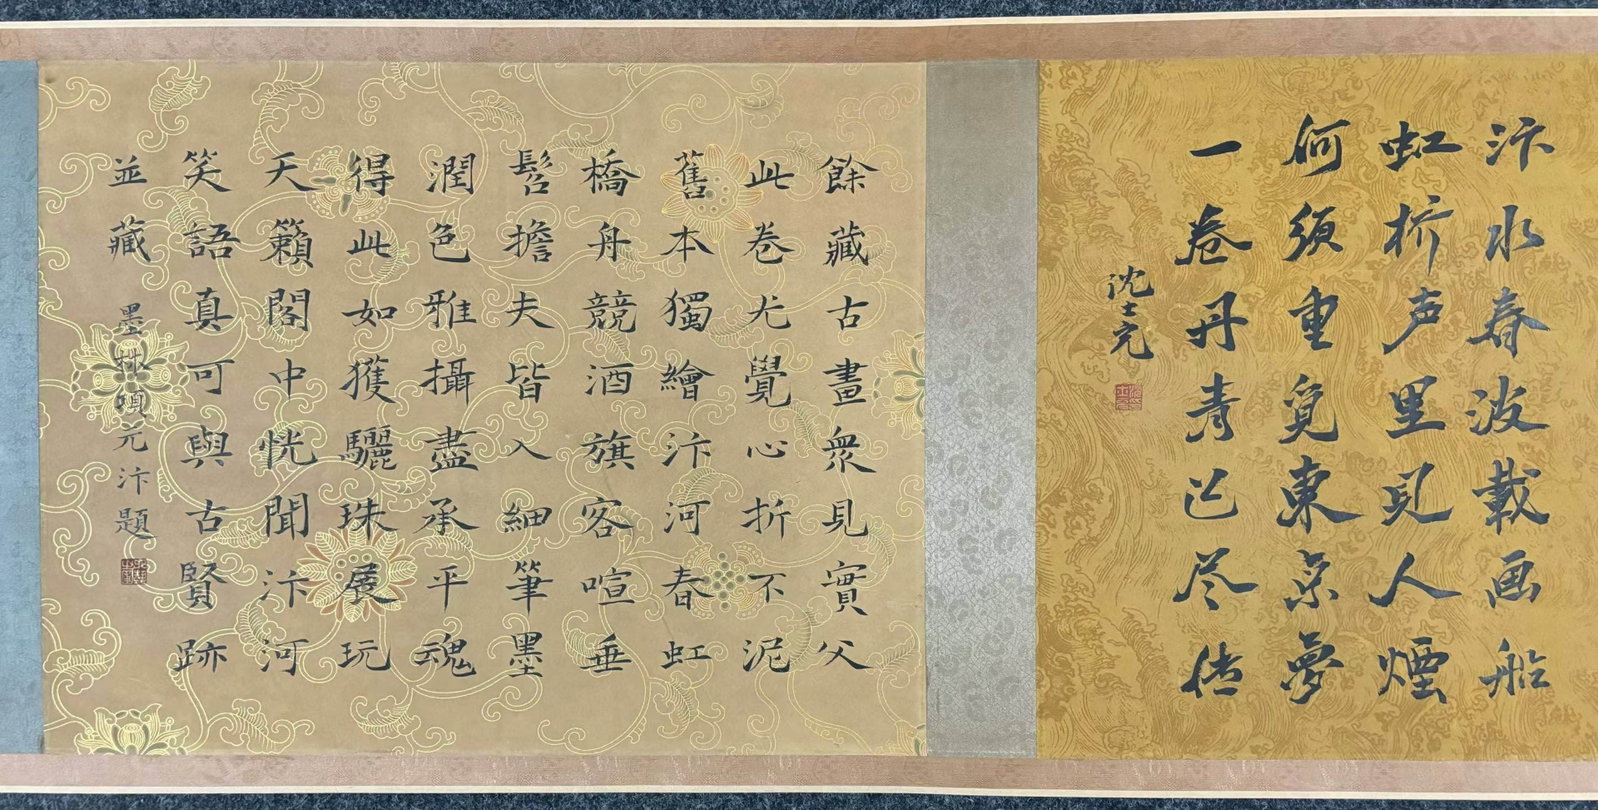 汴水春波載画船
虹桥声里見人煙
何須重覓東京夢
一卷丹青已尽传
沈士充
餘藏古畫衆見實父
此卷尤覺心折不泥
舊本獨繪汴河春虹
橋舟競酒旗客喧垂
髫擔夫皆入細筆墨
潤色雅攝盡承平魂
得此如獲驪珠展玩
天籟閣中恍聞汴河
笑語真可與古賢跡
並藏
墨林項元汴題